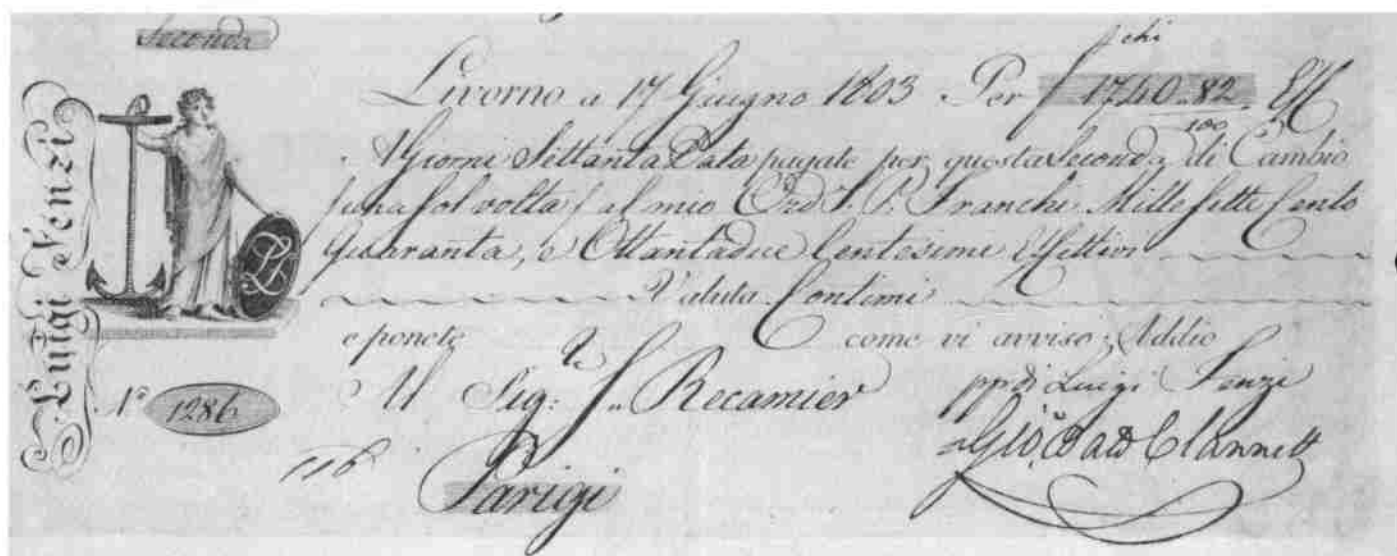 Seconda
chi
Livorno a 17 Giugno 1803 Per f 1740..82 Eff
100
A Giorni Settanta Data pagate per questa Seconda di Cambio
una sol volta al mio Ord. S. P. Franchi Mille sette Cento
Quaranta, e Ottantadue Centesimi Effettivi
Valuta Contimi
e ponete come vi avviso; Addio
Al Sig: J. Recamier ppa di Luigi Fenzi
Parigi
Luigi Fenzi
LF
No 1286